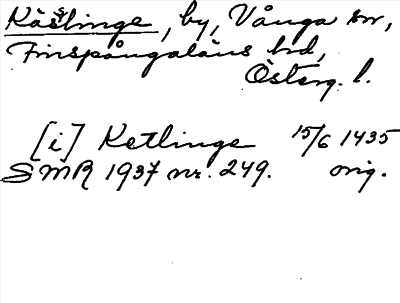 Kästlinge, by, Vånga sn,
Finspångaläns hd,
Österg. l.
[i] Ketlinge 15/6 1435
SMR 1937 nr. 249. orig.